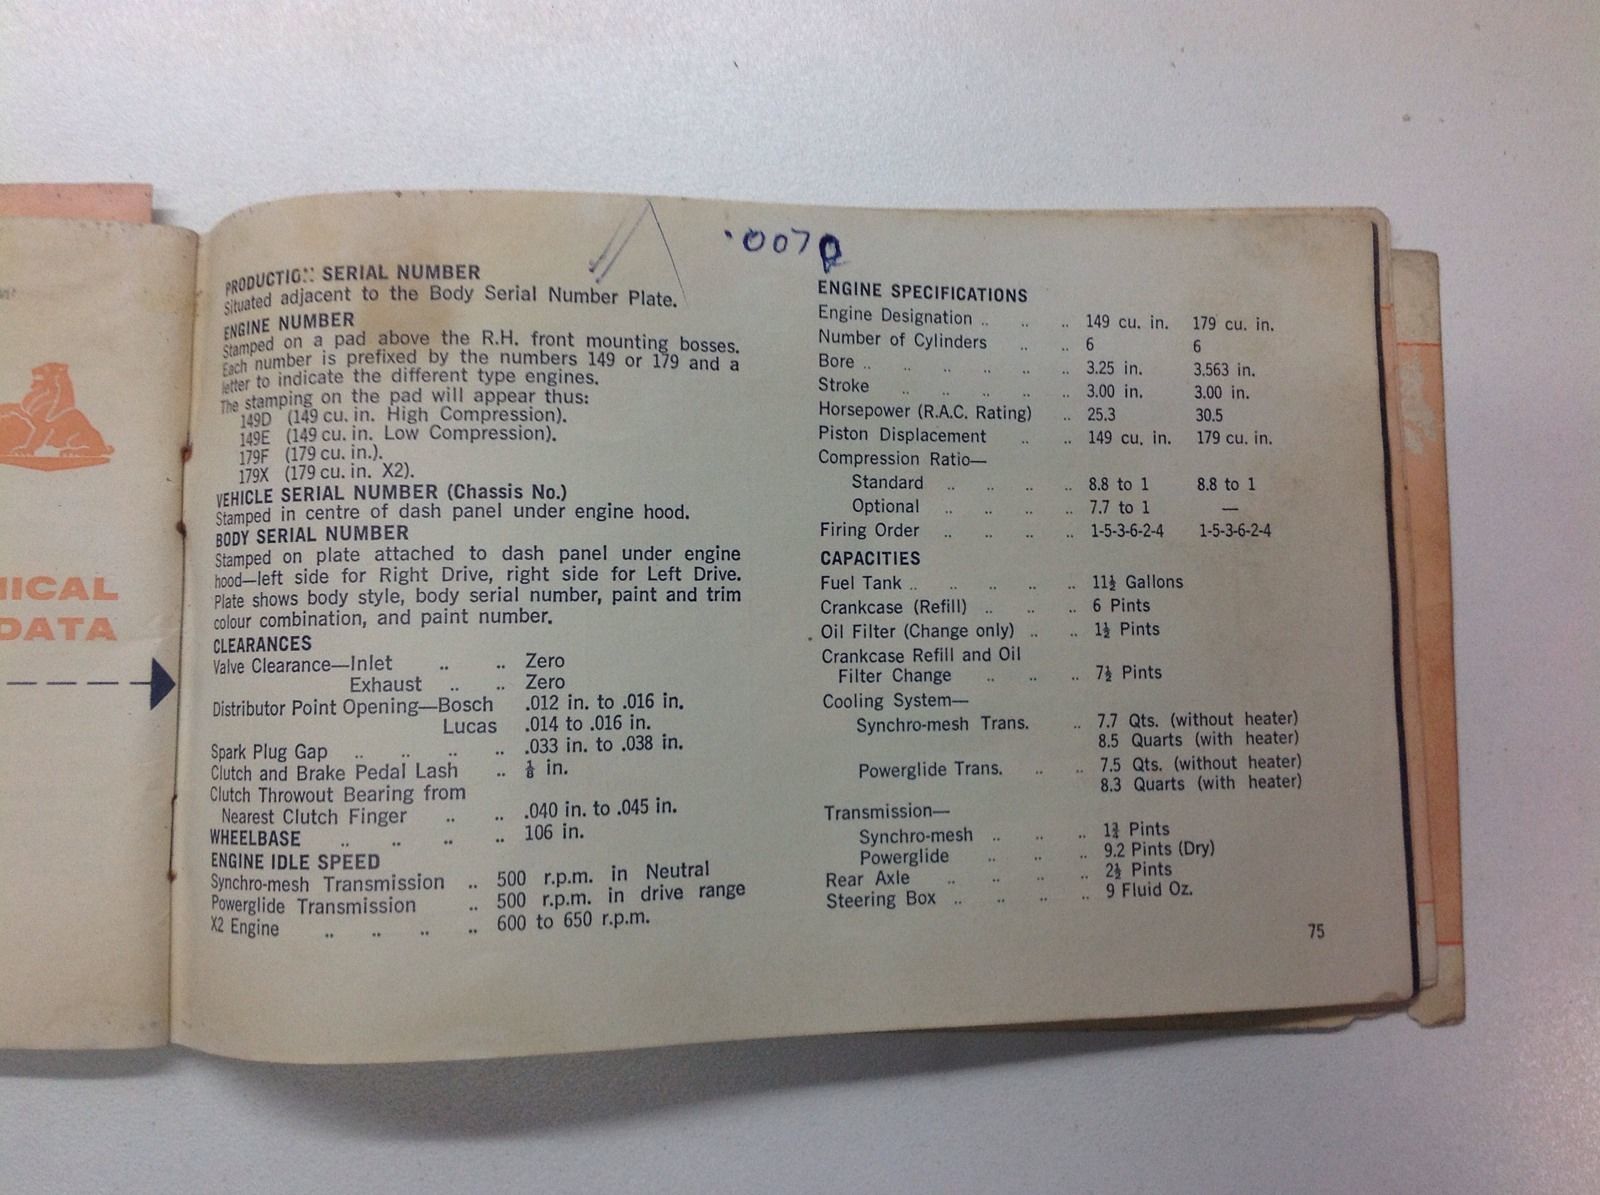 ICAL
DATA
.007
PRODUCTION SERIAL NUMBER
Situated adjacent to the Body Serial Number Plate.
ENGINE NUMBER
Stamped on a pad above the R.H. front mounting bosses.
Each number is prefixed by the numbers 149 or 179 and a
letter to indicate the different type engines.
The stamping on the pad will appear thus:
149D (149 cu. in. High Compression).
149E (149 cu. in. Low Compression).
179F (179 cu. in.).
179X (179 cu. in. X2).
VEHICLE SERIAL NUMBER (Chassis No.)
Stamped in centre of dash panel under engine hood.
BODY SERIAL NUMBER
Stamped on plate attached to dash panel under engine
hood—left side for Right Drive, right side for Left Drive.
Plate shows body style, body serial number, paint and trim
colour combination, and paint number.
CLEARANCES
Valve Clearance—Inlet .. .. Zero
Exhaust .. .. Zero
Distributor Point Opening—Bosch .012 in. to .016 in.
Lucas .014 to .016 in.
Spark Plug Gap .. .. .. .. .033 in. to .038 in.
Clutch and Brake Pedal Lash .. ⅛ in.
Clutch Throwout Bearing from
Nearest Clutch Finger .. .. .040 in. to .045 in.
WHEELBASE .. .. .. .. 106 in.
ENGINE IDLE SPEED
Synchro-mesh Transmission .. 500 r.p.m. in Neutral
Powerglide Transmission .. 500 r.p.m. in drive range
X2 Engine .. .. .. .. 600 to 650 r.p.m.
ENGINE SPECIFICATIONS
Engine Designation .. .. .. 149 cu. in. 179 cu. in.
Number of Cylinders .. .. 6 6
Bore .. .. .. .. .. .. 3.25 in. 3.563 in.
Stroke .. .. .. .. .. 3.00 in. 3.00 in.
Horsepower (R.A.C. Rating) .. 25.3 30.5
Piston Displacement .. .. 149 cu. in. 179 cu. in.
Compression Ratio—
Standard .. .. .. .. 8.8 to 1 8.8 to 1
Optional .. .. .. .. 7.7 to 1 —
Firing Order .. .. .. .. 1-5-3-6-2-4 1-5-3-6-2-4
CAPACITIES
Fuel Tank .. .. .. .. .. 11½ Gallons
Crankcase (Refill) .. .. .. 6 Pints
Oil Filter (Change only) .. .. 1½ Pints
Crankcase Refill and Oil
Filter Change .. .. .. 7½ Pints
Cooling System—
Synchro-mesh Trans. .. 7.7 Qts. (without heater)
8.5 Quarts (with heater)
Powerglide Trans. .. .. 7.5 Qts. (without heater)
8.3 Quarts (with heater)
Transmission—
Synchro-mesh .. .. .. 1¾ Pints
Powerglide .. .. .. 9.2 Pints (Dry)
Rear Axle .. .. .. .. 2½ Pints
Steering Box .. .. .. .. 9 Fluid Oz.
75